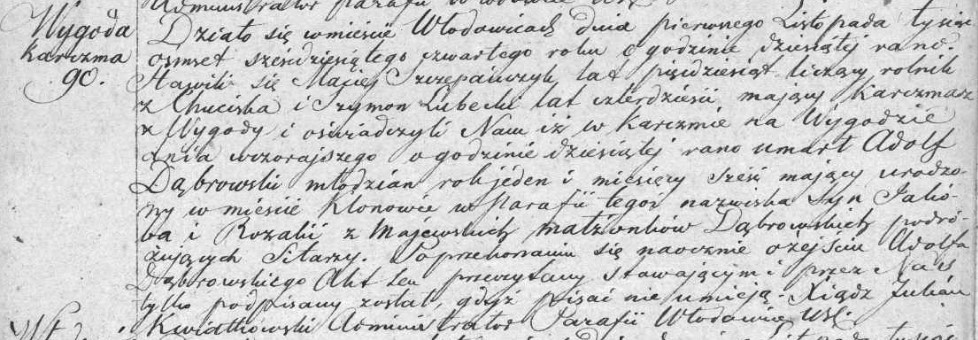 Administrator parafii Włodowic USC
Wygoda
Karczma
90.
Działo się wmieście Włodowicach dnia pierwszego Listopada tysiąc
ośmset sześdziesiątego czwartego roku o godzinie dziesiątej rano.
Stawili się Maciej Szczepańczyk lat pięćdziesiąt liczący rolnik
z Huciska i Szymon Lubecki lat czterdzieści mający Karczmarz
z Wygody i oświadczyli Nam iż w Karczmie na Wygodzie
dnia wczorajszego o godzinie dziesiątej rano umarł Adolf
Dąbrowski młodzian rok jeden i miesięcy sześć mający urodzo-
ny w mieście Klonowie w Parafii tegoż nazwiska Syn Jakó-
ba i Rozalii z Majewskich małżonków Dąbrowskich podró-
żujących Sitarzy. Po przekonaniu się naocznie o zejściu Adolfa
Dąbrowskiego Akt ten przeczytany stawającym i przez Nas
tylko podpisany został, gdyż pisać nie umieją. Xiądz Julian
Kwiatkowski Administrator Parafii Włodowic USC.